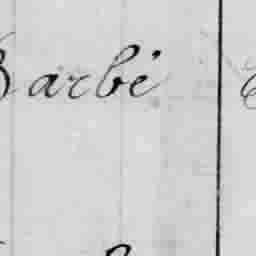 Barbé